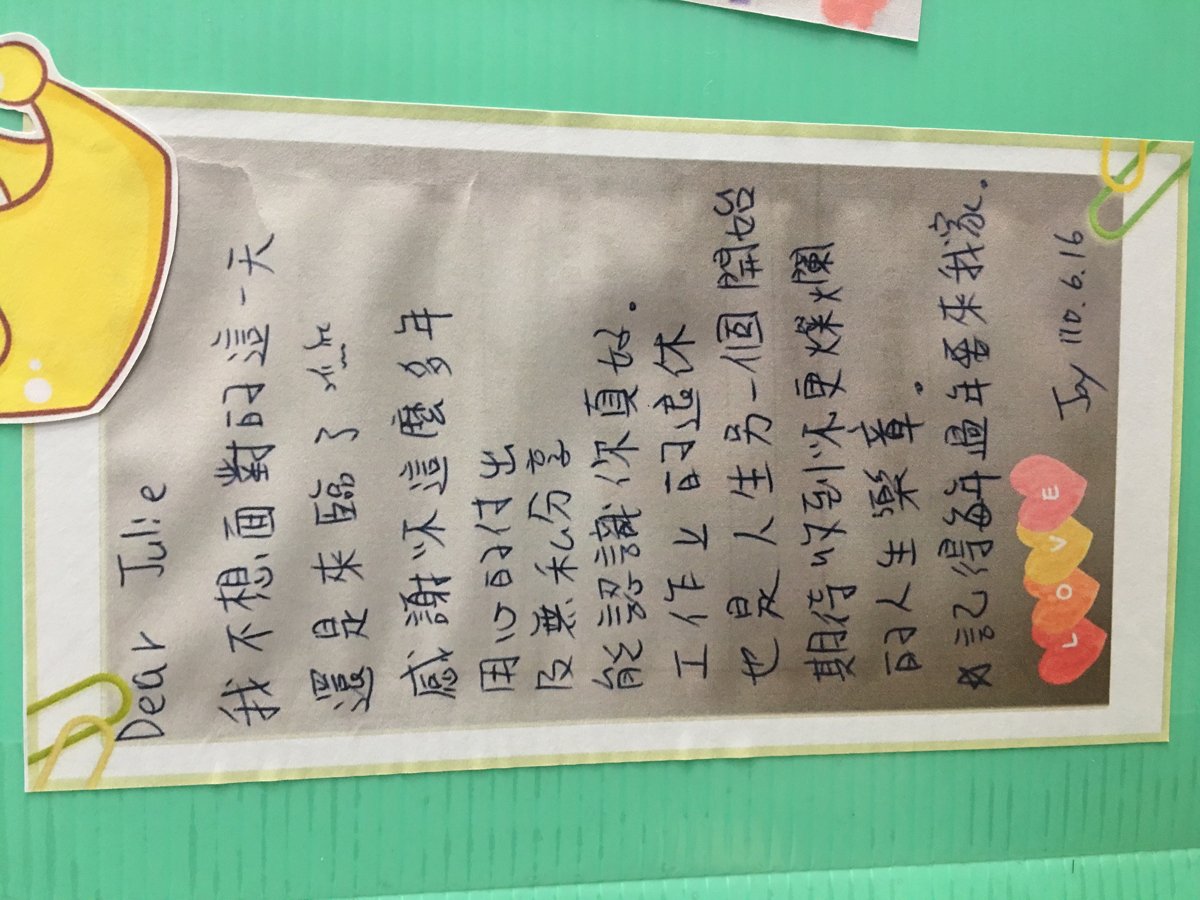 Dear Julie
我不想面對的這一天
還是來臨了
感謝你這麼多年
用心的付出
及無私分享
能認識你真好。
工作上的退休
也是人生另一個開始
期待收到你更燦爛
的人生樂章。
記得每年過年要來我家.
LOVE
Joy 110.6.16